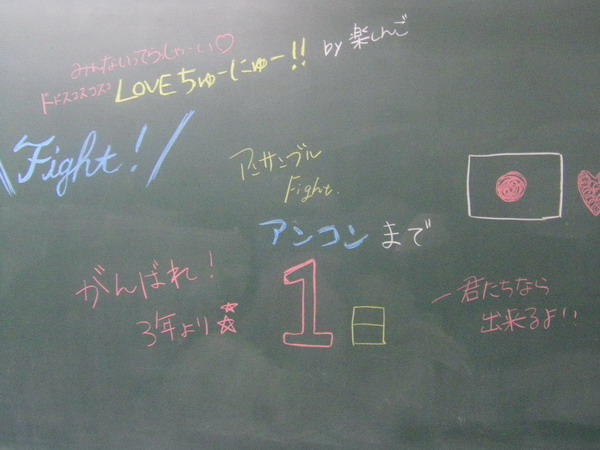 みんないってらっしゃーい♡
ドドスコスコスコ LOVEちゅーにゅー!! by 楽しんご
\Fight!/
アンサンブル
Fight.
アンコンまで
1日
がんばれ!
3年より☆☆
一君たちなら
出来るよ!!